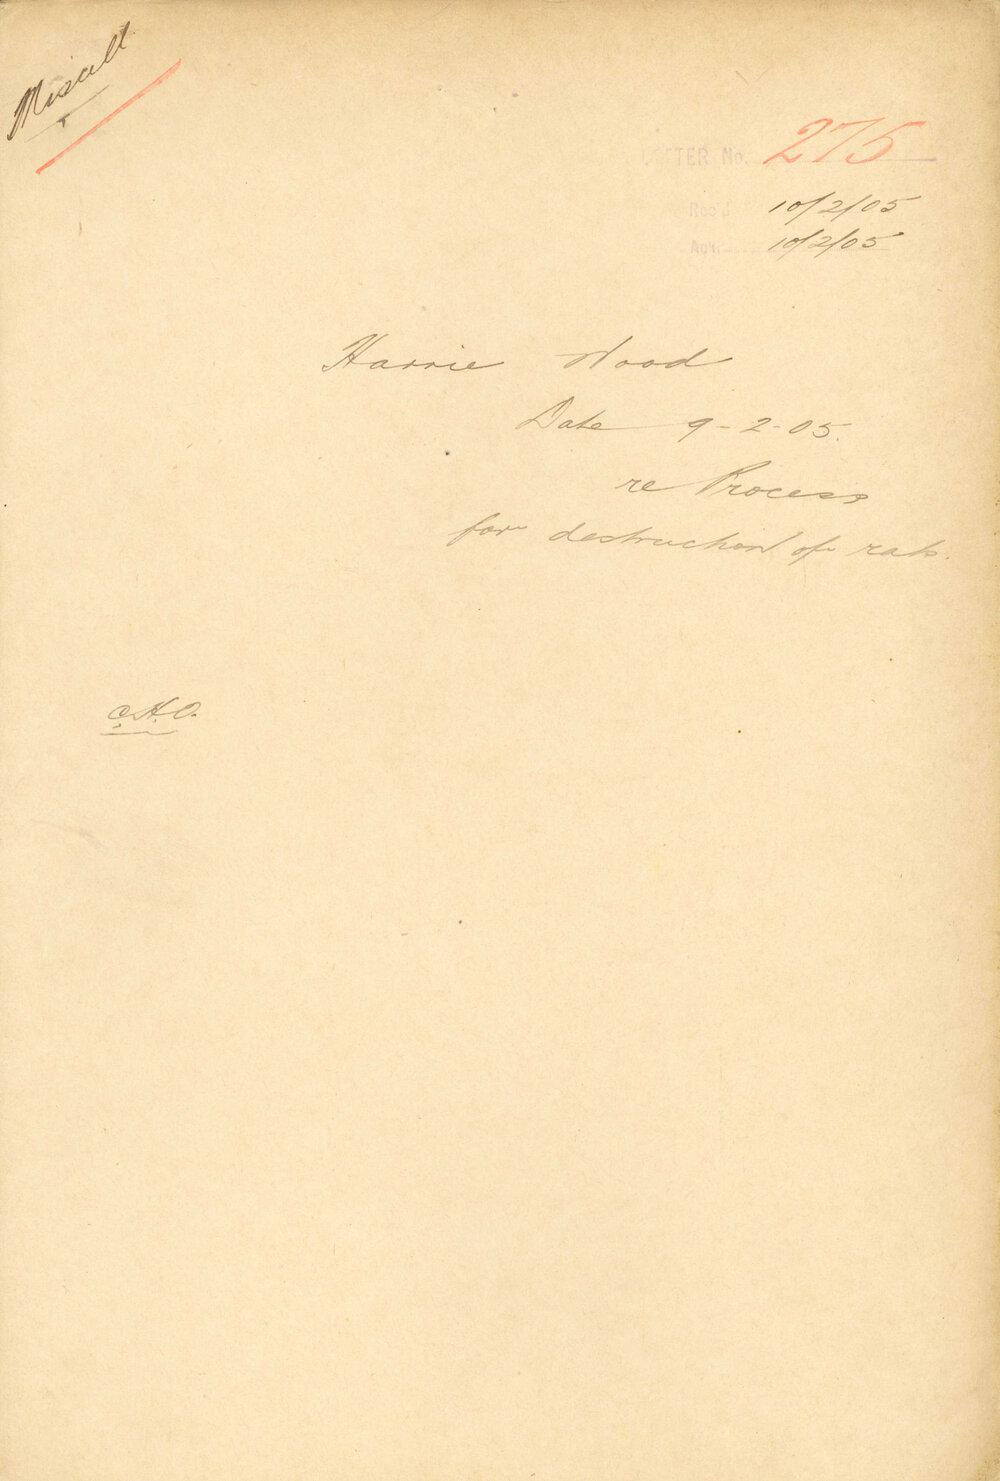 Miscell
LETTER No. 275
Rec'd 10/2/05
Agn. 10/2/05
Harrie Wood
Date 9-2-05.
re Process
for destruction of rats.
C.H.O.